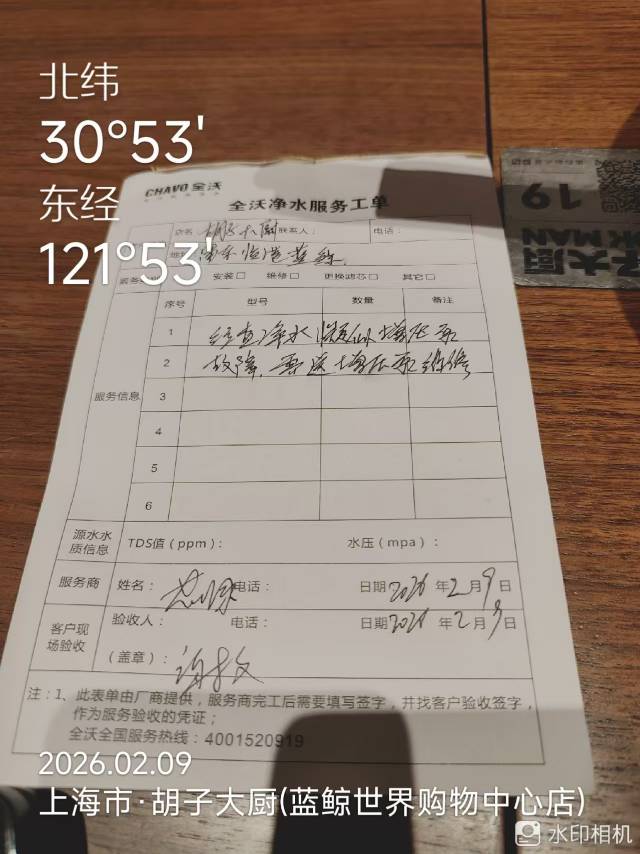 北纬
30°53'
东经
121°53'
CHAVO 全沃
全沃净水服务工单
店名 胡子大厨 联系人： 电话：
临港蓝鲸
安装□ 维修□ 更换滤芯□ 其它□
序号 型号 数量 备注
1 经查净水 增压泵
2 故障，需 增压泵维修
服务信息
3
4
5
6
源水水质信息 TDS值（ppm）： 水压（mpa）：
服务商 姓名： 电话： 日期2026年2月9日
客户现场验收 验收人： 电话： 日期2026年2月9日
（盖章）：
注：1、此表单由厂商提供，服务商完工后需要填写签字，并找客户验收签字，
作为服务验收的凭证；
全沃全国服务热线：4001520919
19
子大厨
MAN
2026.02.09
上海市·胡子大厨(蓝鲸世界购物中心店)
水印相机